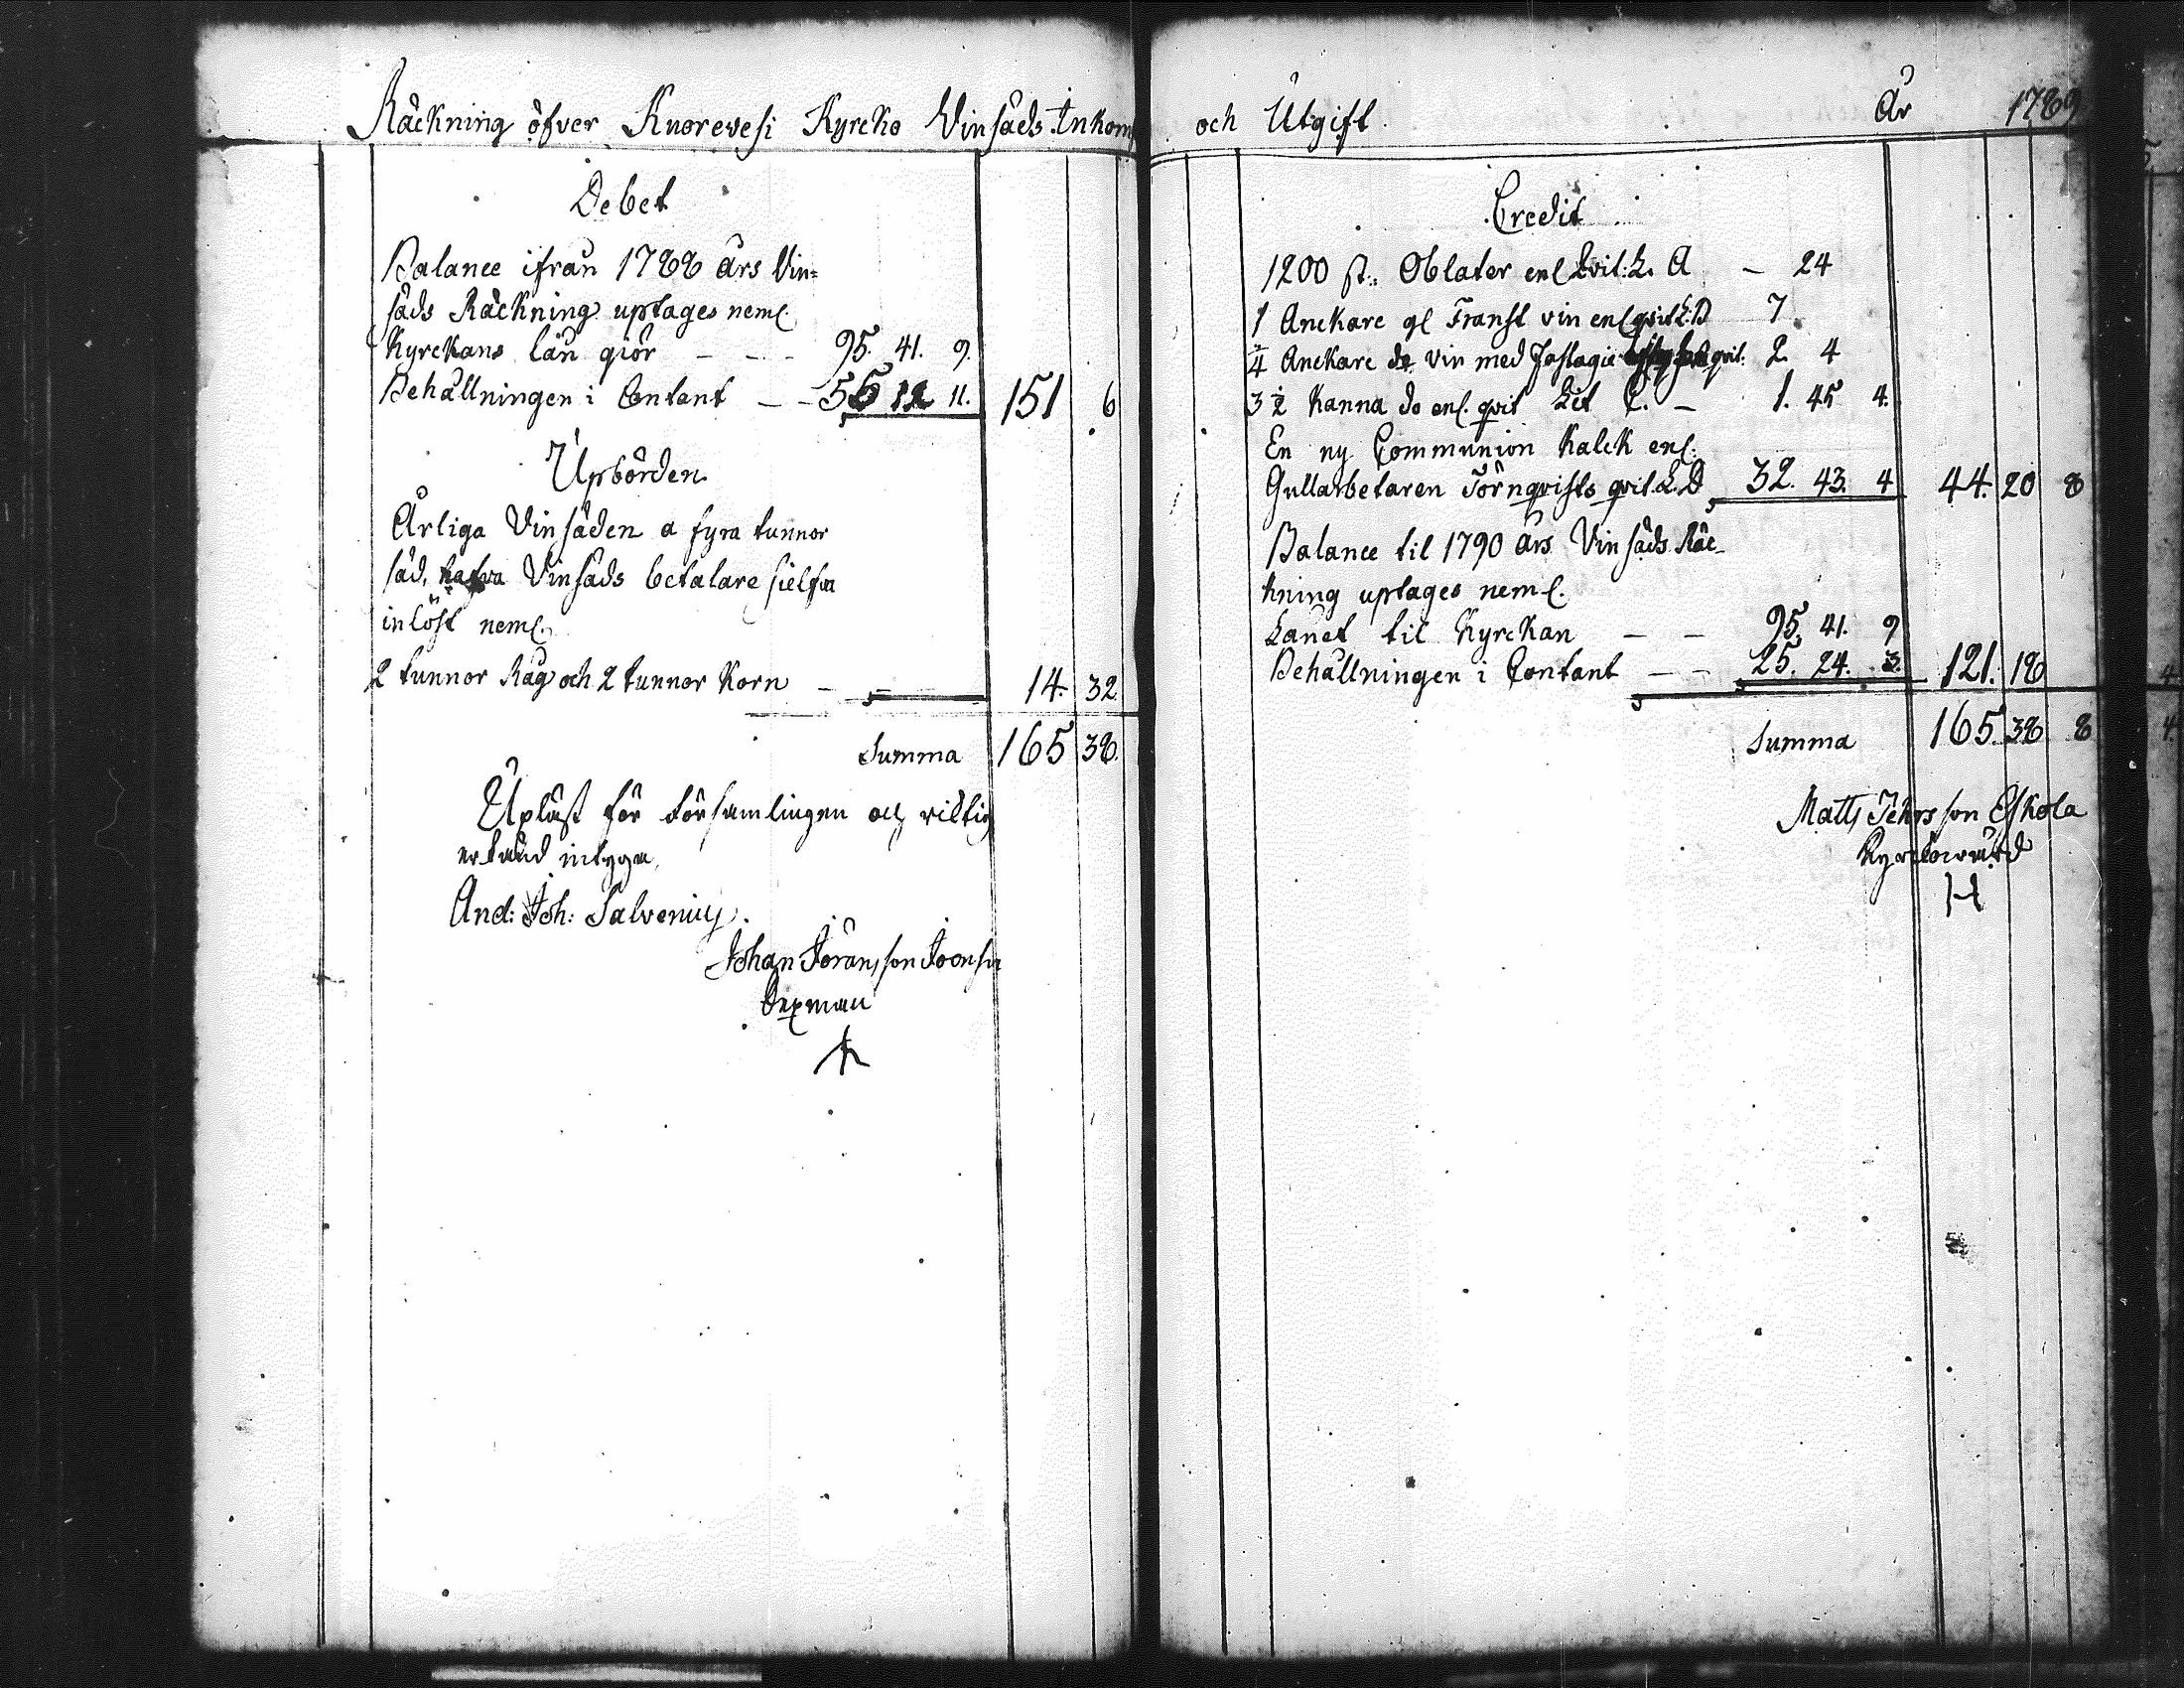 Räckning öfver Kuorevesi Kyrcko Vinsäds Inkom
Debet
Balance ifrån 1788 års Vin=
säds Räckning uptages neml.
Kyrckans lån giör – – – 95. 41. 9.
Behållningen i Contant – – 55 12 11. 151 6
Upbörden
Årliga Vinsäden a fyra tunnor
säd, hafva Vinsäds betalare sielfva
inlöst neml.
2 tunnor Råg och 2 tunnor Korn – – 14. 32
Summa 165 38.
Upläst för församlingen och riktig
erkänd intyga
And: Joh: Salvenius.
Johan Göransson
Sexman
och Utgift År 1789
Credit
1200 st: Oblater enl Qvit: L. A – 24
1 Anckare gl Franst vin enl qvit L. B 7
1/4 Anckare do vin med Fastagie qvit. 2. 4
3 1/2 Kanna do enl. qvit Lit C. – 1. 45 4.
En ny Communion Kalck enl.
Gullarbetaren Törnqvists qvit. L. D 32. 43. 4 44. 20 8
Balance til 1790 års Vinsäds Räc-
kning uptages neml.
Lånet til Kyrckan – – 95. 41. 9
Behållningen i Contant – – 25. 24. 3. 121. 18
Summa 165. 38 8
Matts Jehrsson Eskola
Kyrckovärd